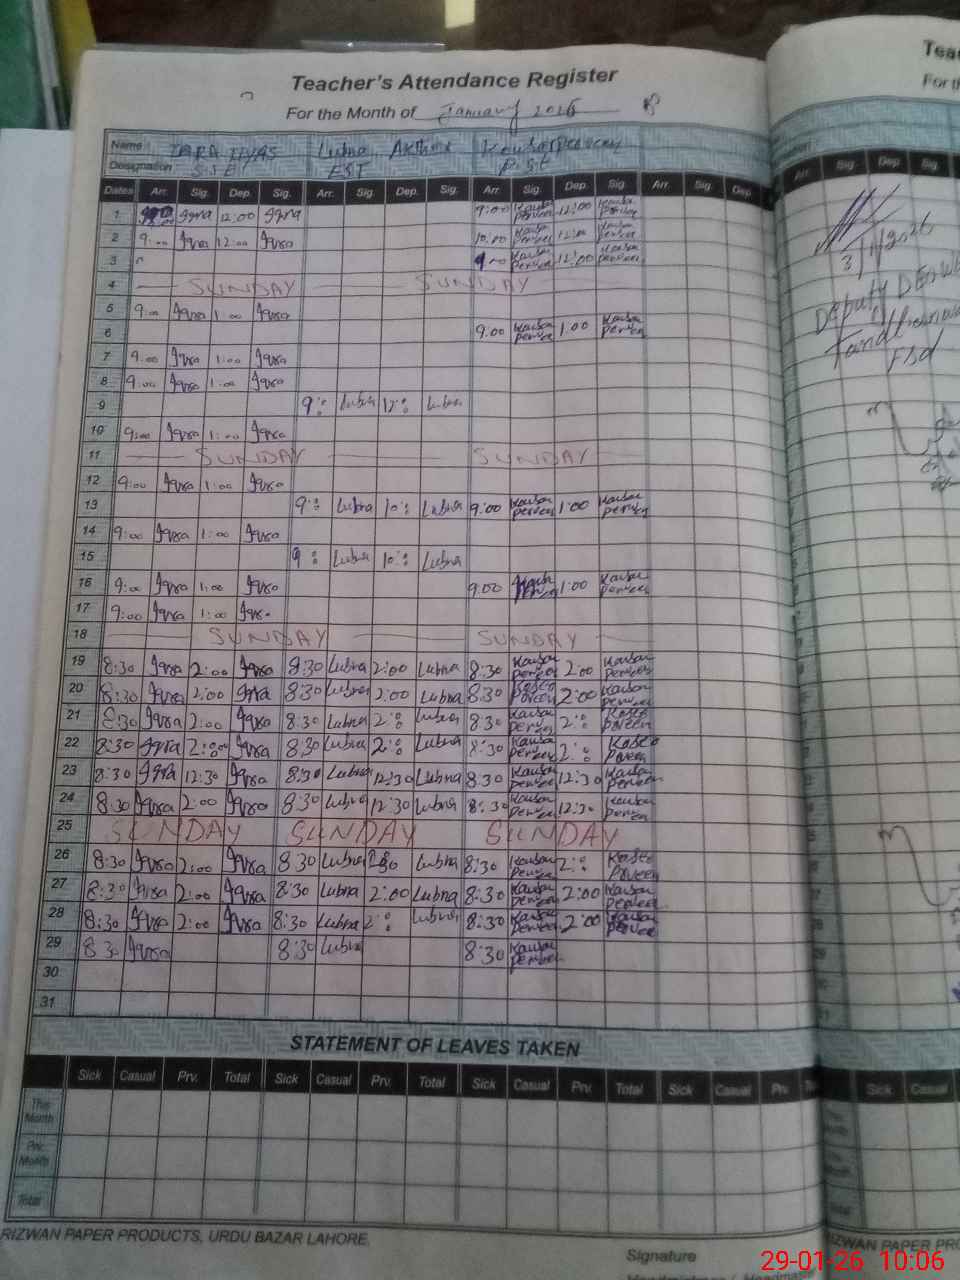 Teacher's Attendance Register
For the Month of January 2026
Name : IQRA ILYAS Lubna Akthar Kousar perveen
Designation S.S.E EST P.S.E
Dates Arr. Sig. Dep. Sig. Arr. Sig. Dep. Sig. Arr. Sig. Dep. Sig. Arr. Sig. Dep
1 Iqra 12:00 Iqra 9:00 Kausar Perveen 12:00 Kausar Perveen
2 9:00 Iqra 12:00 Iqra 10:00 Kausar Perveen 12:00 Kausar Perveen
3 9:00 Kausar Perveen 12:00 Kausar Perveen
4 SUNDAY SUNDAY
5 9:00 Iqra 1:00 Iqra
6 9:00 Kausar Perveen 1:00 Kausar Perveen
7 9:00 Iqra 1:00 Iqra
8 9:00 Iqra 1:00 Iqra
9 9:00 Lubna 12:00 Lubna
10 9:00 Iqra 1:00 Iqra
11 SUNDAY SUNDAY
12 9:00 Iqra 1:00 Iqra
13 9:00 Lubna 10:00 Lubna 9:00 Kausar Perveen 1:00 Kausar Perveen
14 9:00 Iqra 1:00 Iqra
15 9:00 Lubna 10:00 Lubna
16 9:00 Iqra 1:00 Iqra 9:00 Kausar Perveen 1:00 Kausar Perveen
17 9:00 Iqra 1:00 Iqra
18 SUNDAY SUNDAY
19 8:30 Iqra 2:00 Iqra 8:30 Lubna 2:00 Lubna 8:30 Kausar Perveen 2:00 Kausar Perveen
20 8:30 Iqra 2:00 Iqra 8:30 Lubna 2:00 Lubna 8:30 Perveen 2:00 Kausar Perveen
21 8:30 Iqra 2:00 Iqra 8:30 Lubna 2:00 Lubna 8:30 Kausar Perveen 2:00 Perveen
22 8:30 Iqra 2:00 Iqra 8:30 Lubna 2:00 Lubna 8:30 Kausar Perveen 2:00 Perveen
23 8:30 Iqra 12:30 Iqra 8:30 Lubna 12:30 Lubna 8:30 Kausar Perveen 12:30 Kausar Perveen
24 8:30 Iqra 2:00 Iqra 8:30 Lubna 12:30 Lubna 8:30 Kausar Perveen 12:30 Kausar Perveen
25 SUNDAY SUNDAY SUNDAY
26 8:30 Iqra 2:00 Iqra 8:30 Lubna Lubna 8:30 Kausar Perveen 2:00 Perveen
27 8:30 Iqra 2:00 Iqra 8:30 Lubna 2:00 Lubna 8:30 Kausar Perveen 2:00 Kausar Perveen
28 8:30 Iqra 2:00 Iqra 8:30 Lubna 2:00 Lubna 8:30 Kausar Perveen 2:00 Kausar Perveen
29 8:30 Iqra 8:30 Lubna 8:30 Kausar Perveen
30
31
STATEMENT OF LEAVES TAKEN
Sick Casual Prv. Total Sick Casual Prv. Total Sick Casual Prv. Total Sick Casual Prv.
This Month
Prv. Month
Total
RIZWAN PAPER PRODUCTS, URDU BAZAR LAHORE.
Signature
Arr. Sig. Dep. Sig.
3/1/2026
Deputy DEO
Tandlianwala
FSD
Sick Casual
RIZWAN PAPER
29-01-26 10:06